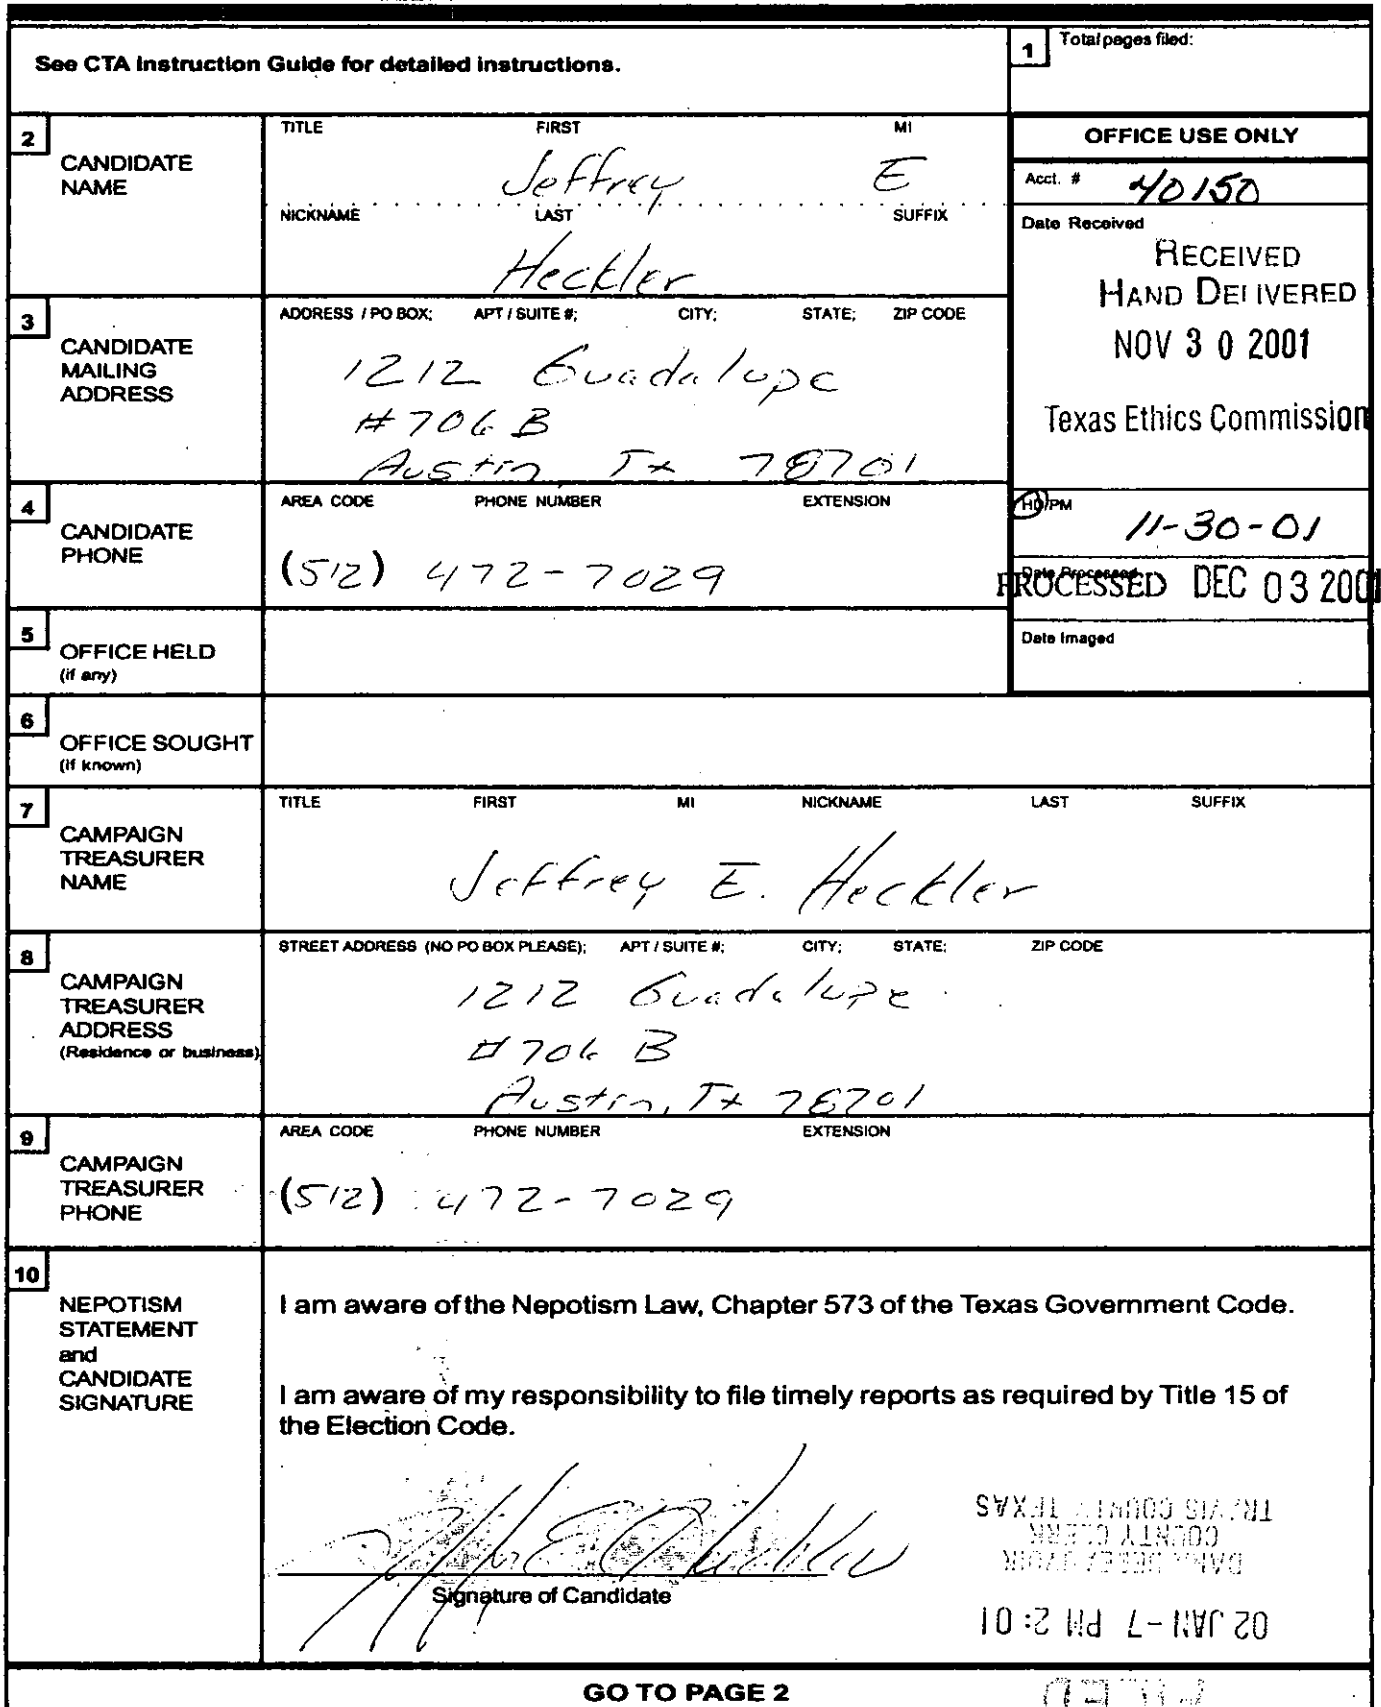 See CTA Instruction Guide for detailed instructions.
1 Total pages filed:
2 CANDIDATE NAME
TITLE FIRST MI
Jeffrey E
NICKNAME LAST SUFFIX
Heckler
OFFICE USE ONLY
Acct. # 40150
Date Received
RECEIVED
HAND DELIVERED
NOV 30 2001
Texas Ethics Commission
HD/PM
11-30-01
Date Processed
PROCESSED DEC 03 2001
Date Imaged
3 CANDIDATE MAILING ADDRESS
ADDRESS / PO BOX; APT / SUITE #; CITY; STATE; ZIP CODE
1212 Guadalupe
#706 B
Austin, Tx 78701
4 CANDIDATE PHONE
AREA CODE PHONE NUMBER EXTENSION
(512) 472-7029
5 OFFICE HELD
(if any)
6 OFFICE SOUGHT
(if known)
7 CAMPAIGN TREASURER NAME
TITLE FIRST MI NICKNAME LAST SUFFIX
Jeffrey E. Heckler
8 CAMPAIGN TREASURER ADDRESS
(Residence or business)
STREET ADDRESS (NO PO BOX PLEASE); APT / SUITE #; CITY; STATE; ZIP CODE
1212 Guadalupe
#706 B
Austin, Tx 78701
9 CAMPAIGN TREASURER PHONE
AREA CODE PHONE NUMBER EXTENSION
(512) 472-7029
10 NEPOTISM STATEMENT and CANDIDATE SIGNATURE
I am aware of the Nepotism Law, Chapter 573 of the Texas Government Code.
I am aware of my responsibility to file timely reports as required by Title 15 of
the Election Code.
Signature of Candidate
TRAVIS COUNTY TEXAS
COUNTY CLERK
02 JAN -7 PM 2:01
GO TO PAGE 2